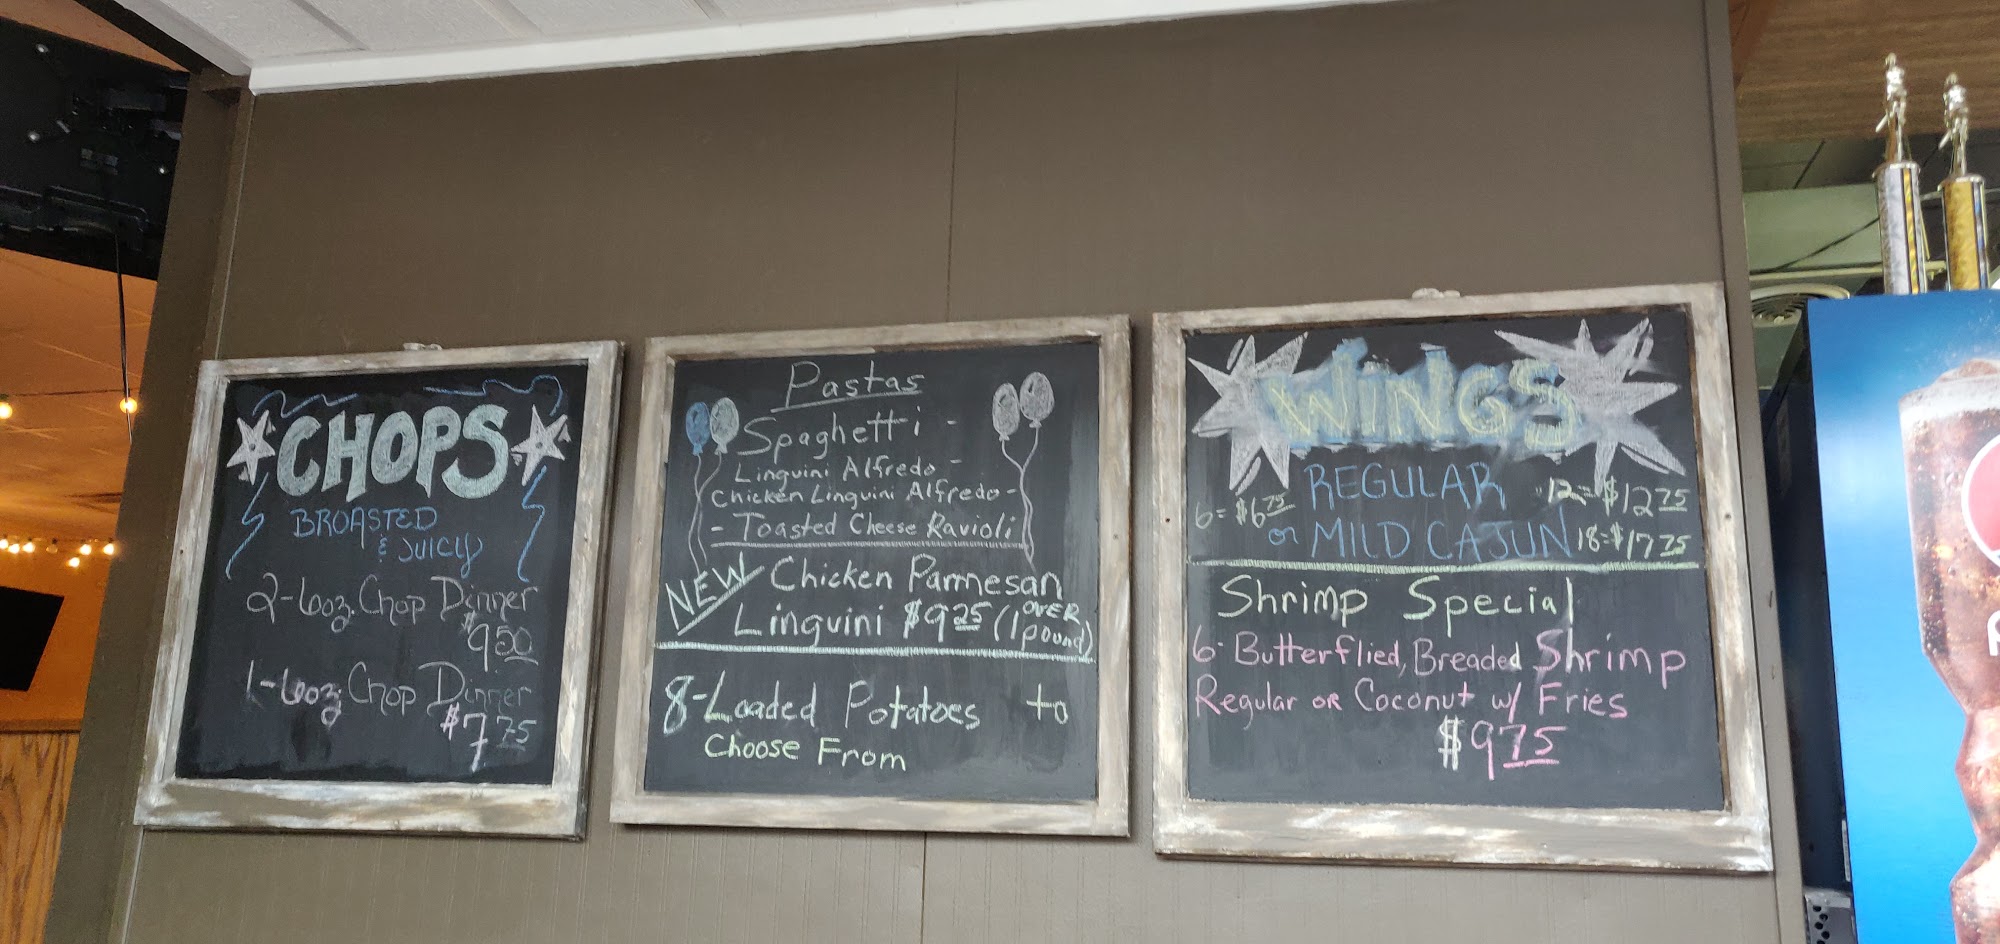 CHOPS
BROASTED
& JUICY
2-6oz. Chop Dinner
$9.50
1-6oz. Chop Dinner
$7.75
Pastas
Spaghetti -
Linguini Alfredo -
Chicken Linguini Alfredo -
- Toasted Cheese Ravioli
NEW Chicken Parmesan
Linguini $9.25 (OVER 1 pound)
8-Loaded Potatoes to
Choose From
WINGS
6=$6.75 REGULAR 12=$12.75
or MILD CAJUN 18=$17.75
Shrimp Special
6- Butterflied, Breaded Shrimp
Regular or Coconut w/ Fries
$9.75